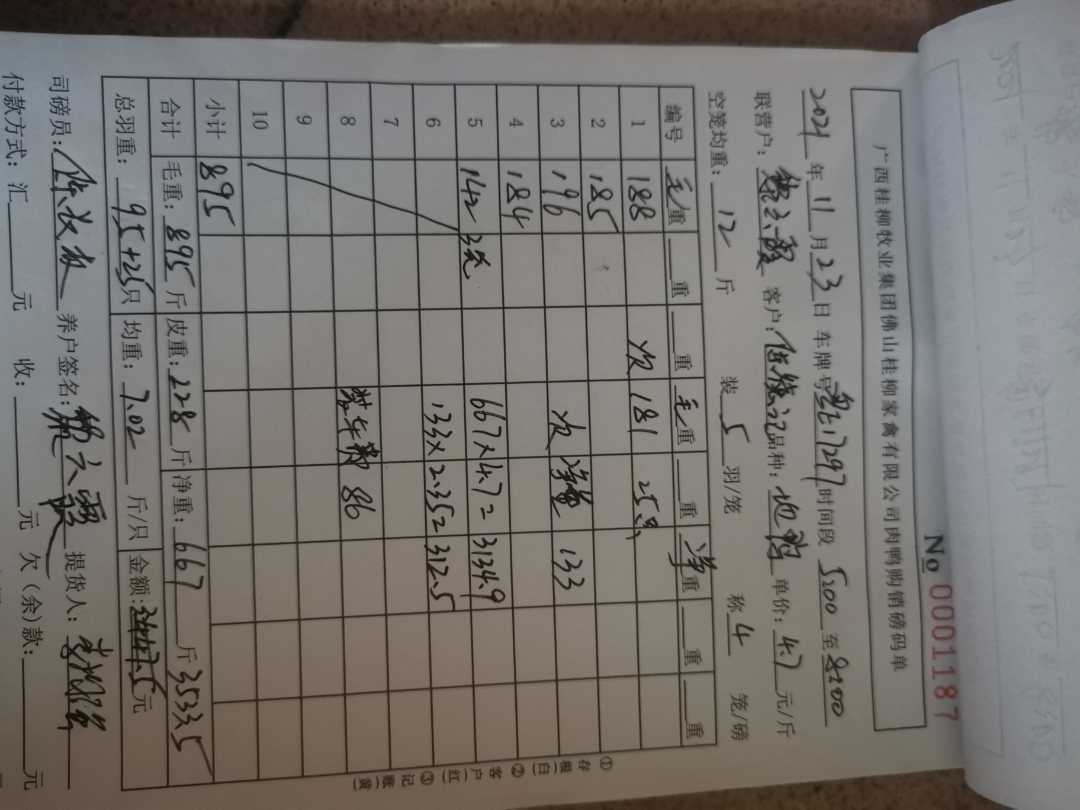 广西桂柳牧业集团佛山桂柳家禽有限公司肉鸭购销磅码单
No 0001187
2021年11月23日 车牌号 7297 时间段 5:00 至 8:00
联营户: 客户: 品种: 单价: 4.7 元/斤
空笼均重: 12 斤 装 5 羽/笼 称 4 笼/磅
编号 毛重 重 重 毛重 重 净重 重 重
1 188 次 181 25只
2 185
3 196 次 净重 133
4 184
5 142 3笼 667×4.7 3134.9
6 133×2.35 312.5
7
8 装车费 86
9
10
小计 895
合计 毛重: 895 斤 皮重: 228 斤 净重: 667 斤 3533.5
总羽重: 95+25只 均重: 7.02 斤/只 金额: 3447.5元
司磅员: 养户签名: 提货人:
付款方式: 汇 元 收: 元 欠(余)款: 元
①存根(白) ②客户(红) ③记账(黄)